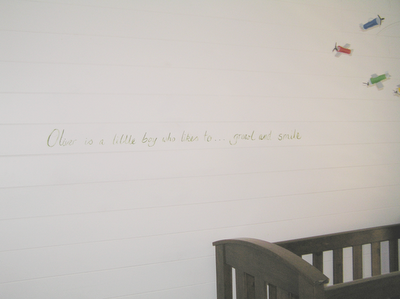 Oliver is a little boy who likes to... grunt and smile